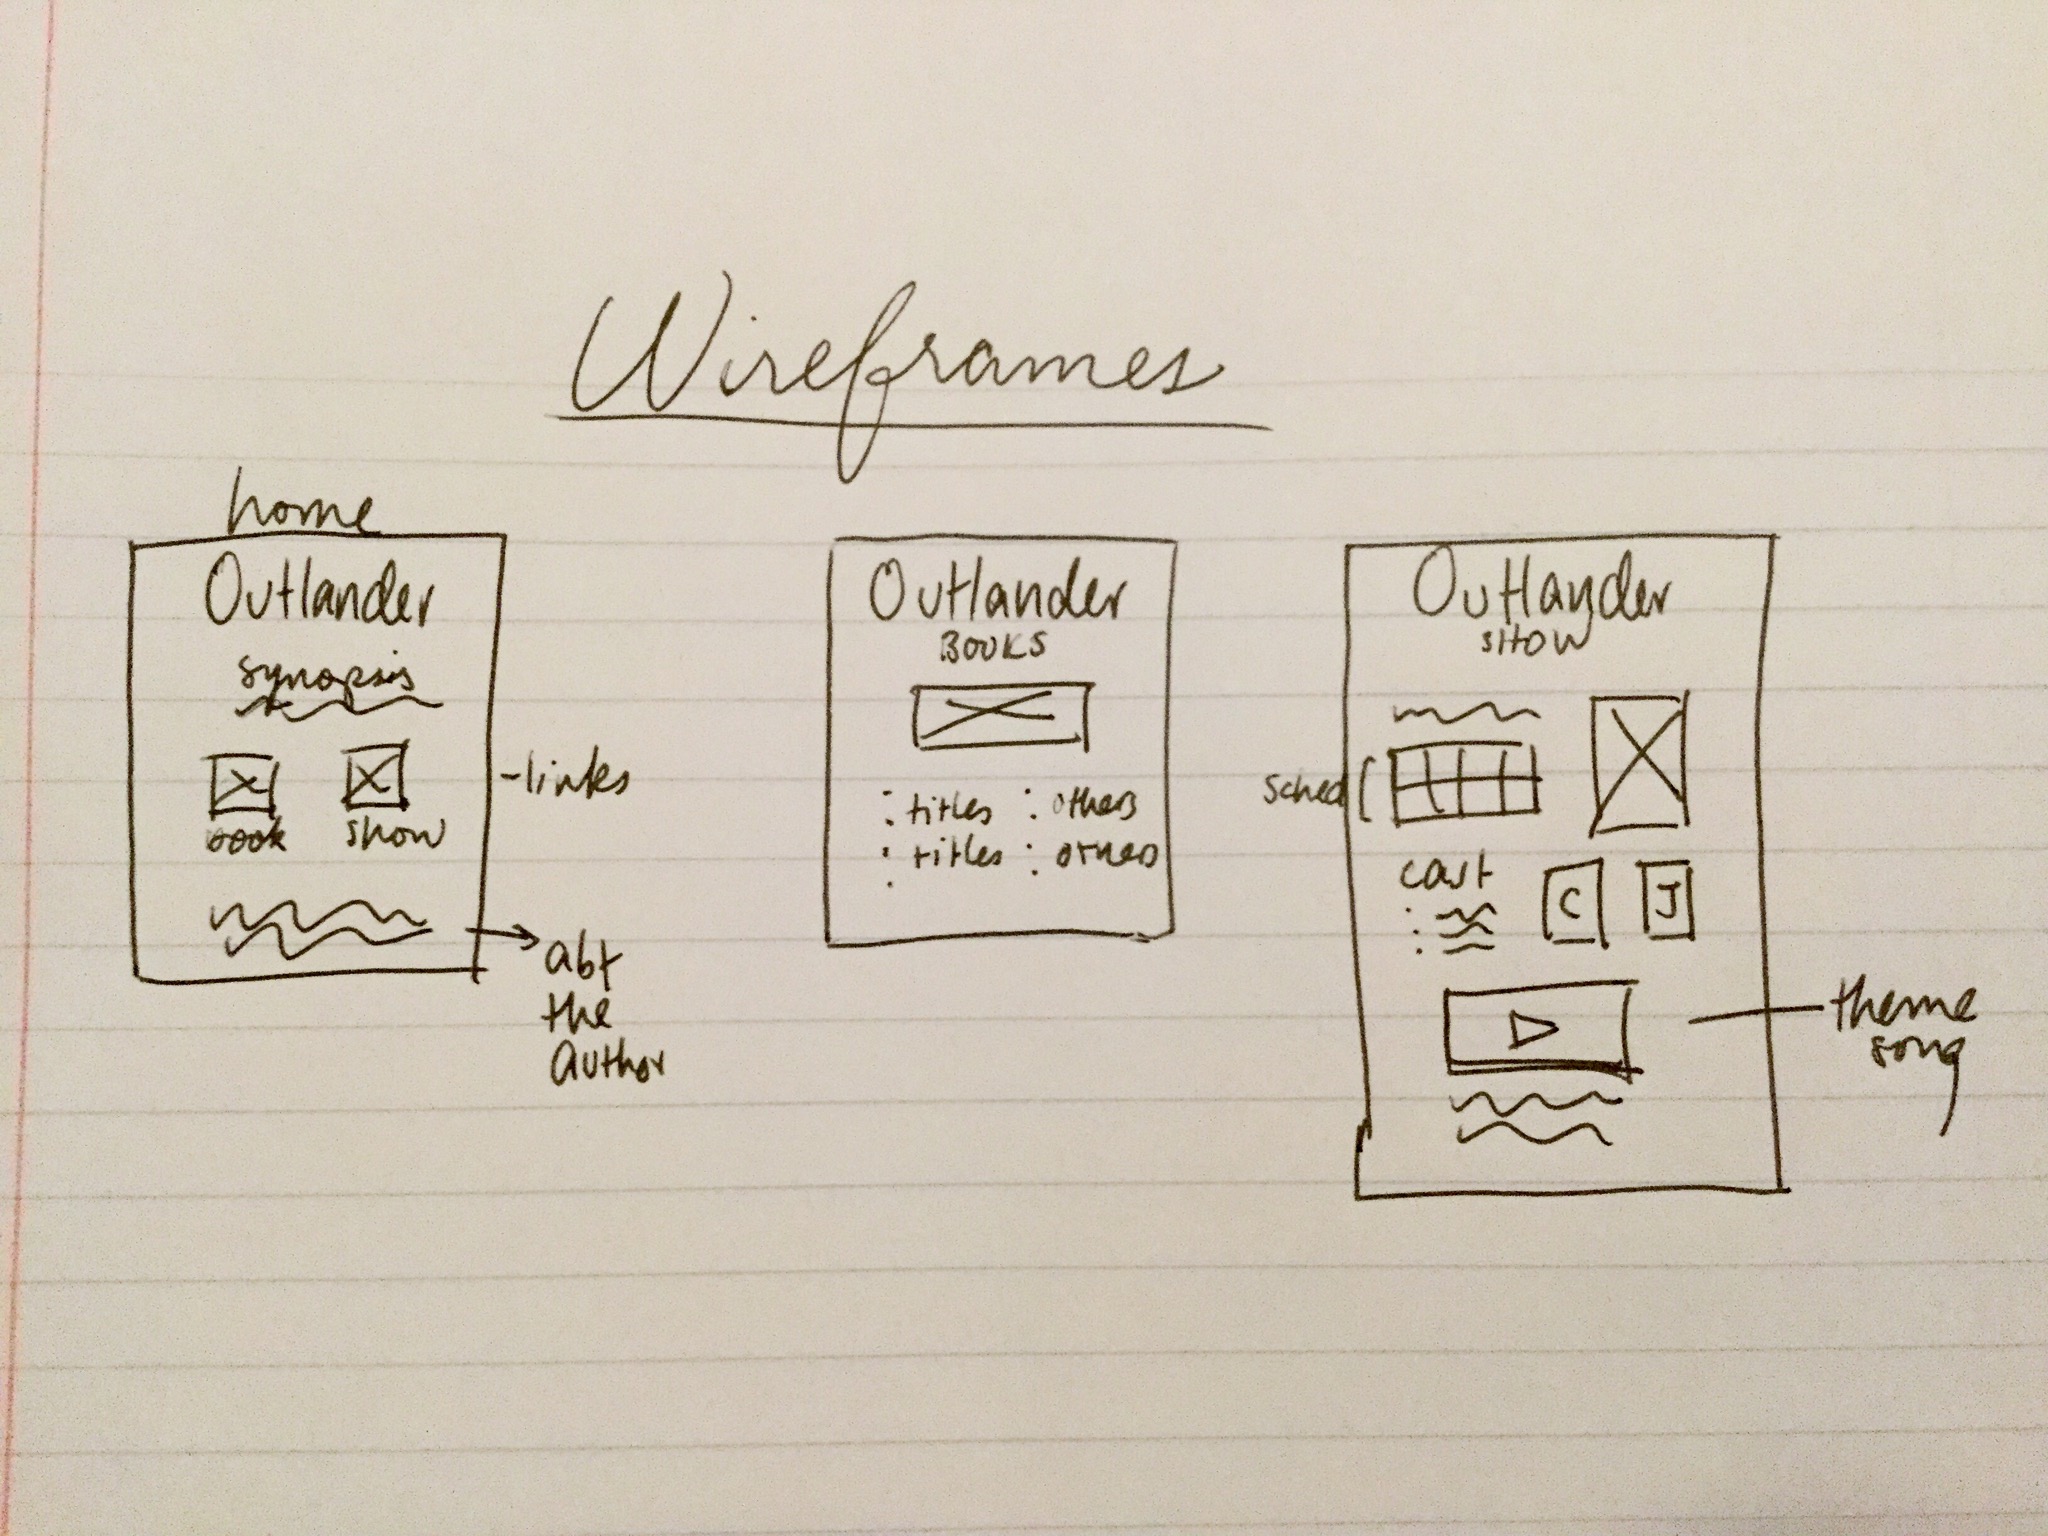 Wireframes
home
Outlander
synopsis
book show
-links
abt
the
author
Outlander
BOOKS
: titles : others
: titles : others
Outlander
SHOW
sched
cast
C J
theme
song